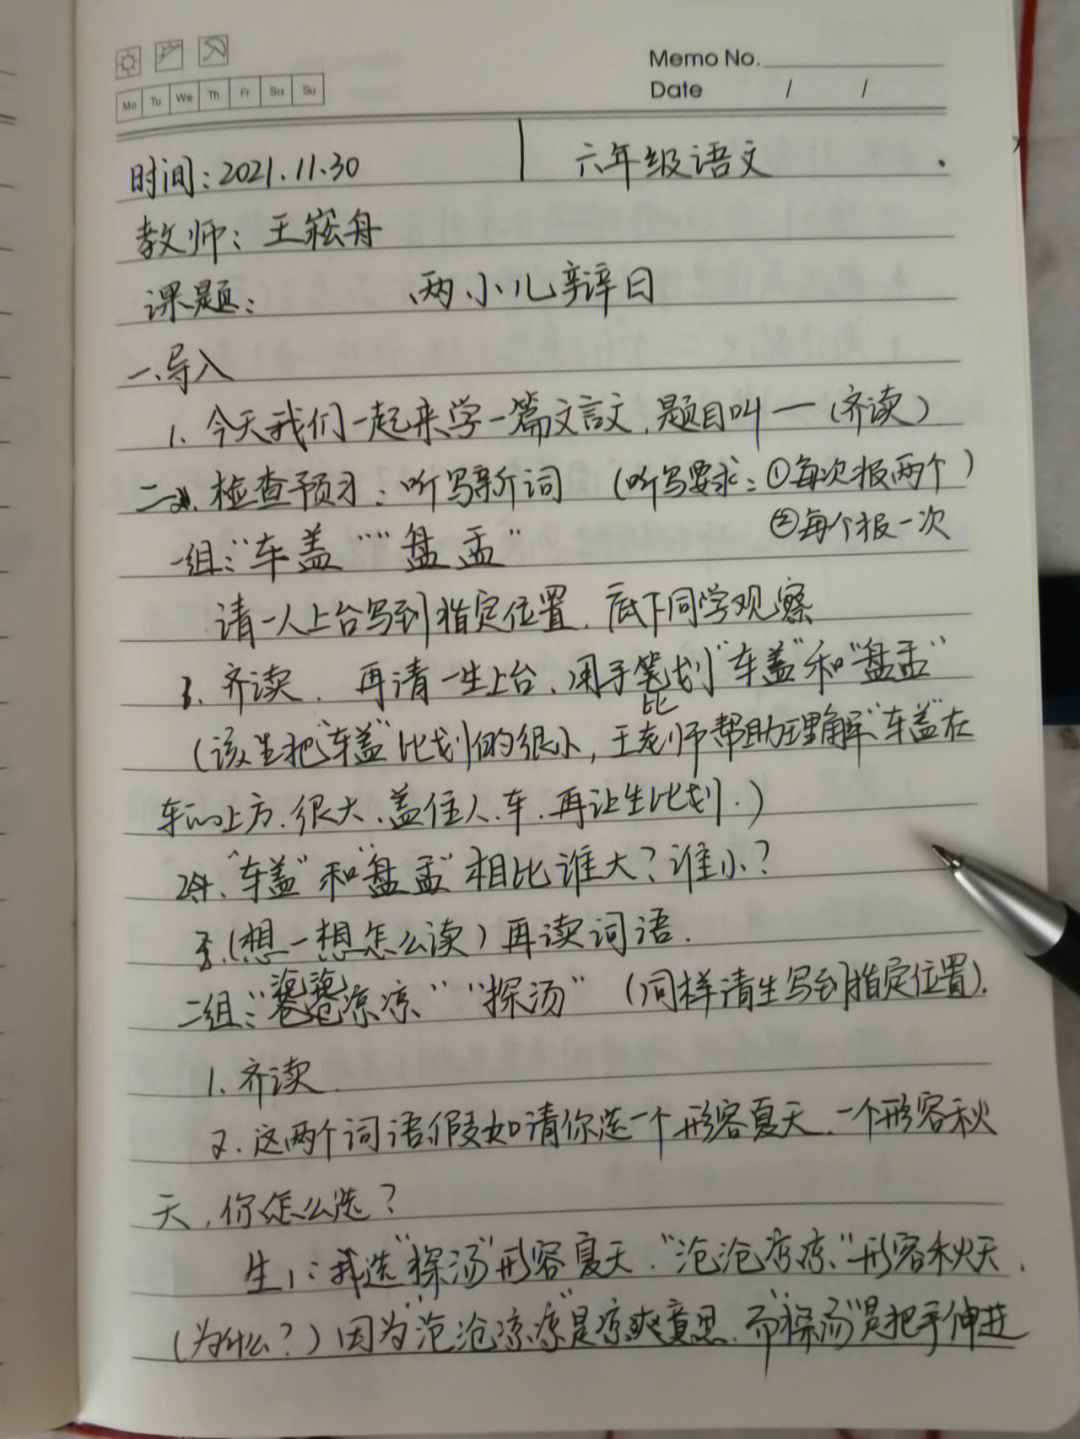 Memo No.
Mo Tu We Th Fr Sa Su
Date / /
时间：2021.11.30 六年级语文
教师：王崧舟
课题： 两小儿辩日
一、导入
1. 今天我们一起来学一篇文言文，题目叫一（齐读）
二、检查预习：听写新词 （听写要求：①每次报两个）
②每个报一次
一组：“车盖”“盘盂”
请一人上台写到指定位置，底下同学观察
1. 齐读．再请一生上台，用手笔划“车盖”和“盘盂”
比
（该生把“车盖”比划的很小，王老师帮助理解“车盖”在
车的上方、很大、盖住人、车．再让生比划．）
2、“车盖”和“盘盂”相比谁大？谁小？
3.（想一想怎么读）再读词语．
沧沧
二组：“凉凉”“探汤”（同样请生写到指定位置）．
1. 齐读．
2. 这两个词语假如请你选一个形容夏天，一个形容秋
天，你怎么选？
生1：我选“探汤”形容夏天．“沧沧凉凉”形容秋天．
（为什么？）因为“沧沧凉凉”是凉爽意思，而“探汤”是把手伸进